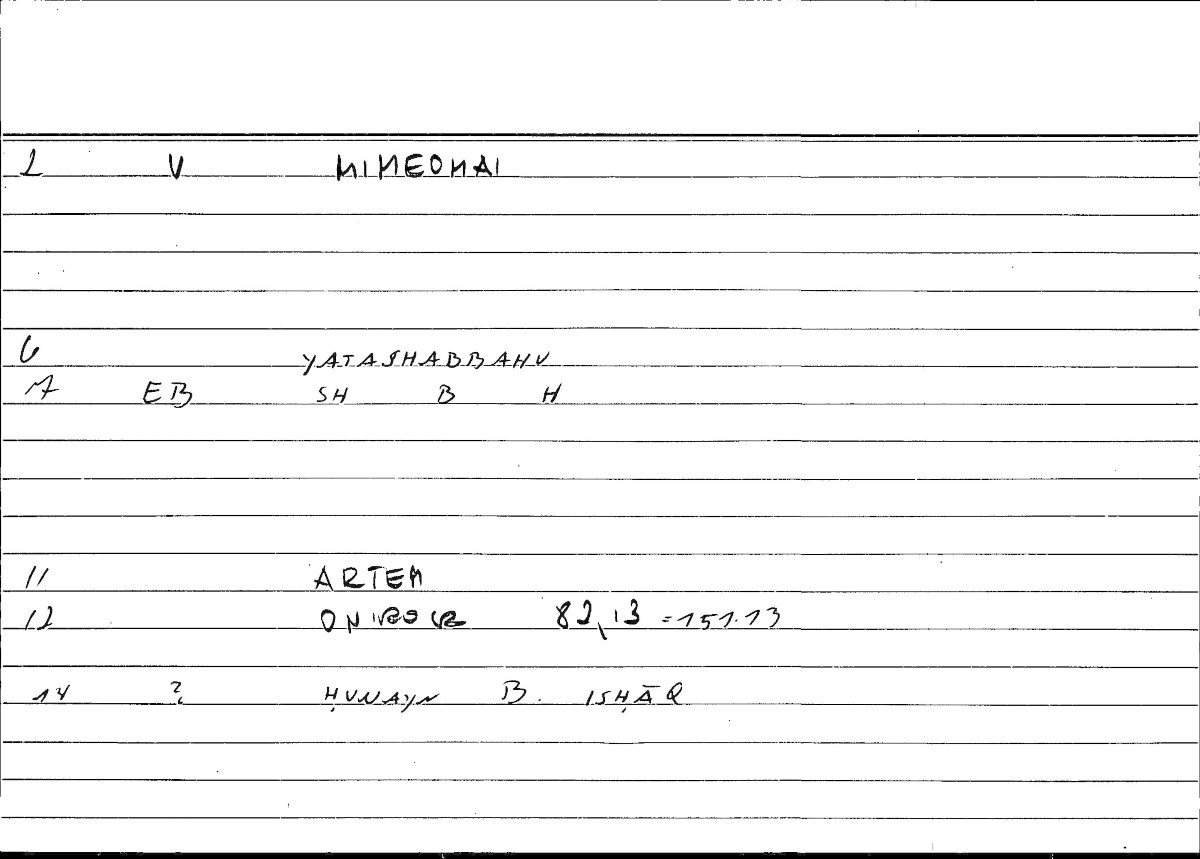 2 V MIMEOMAI
6 YATASHABBAHU
7 EB SH B H
11 ARTEM
12 ONIROCR 82,13 =151.13
14 ? ḤUNAYN B. ISḤĀQ